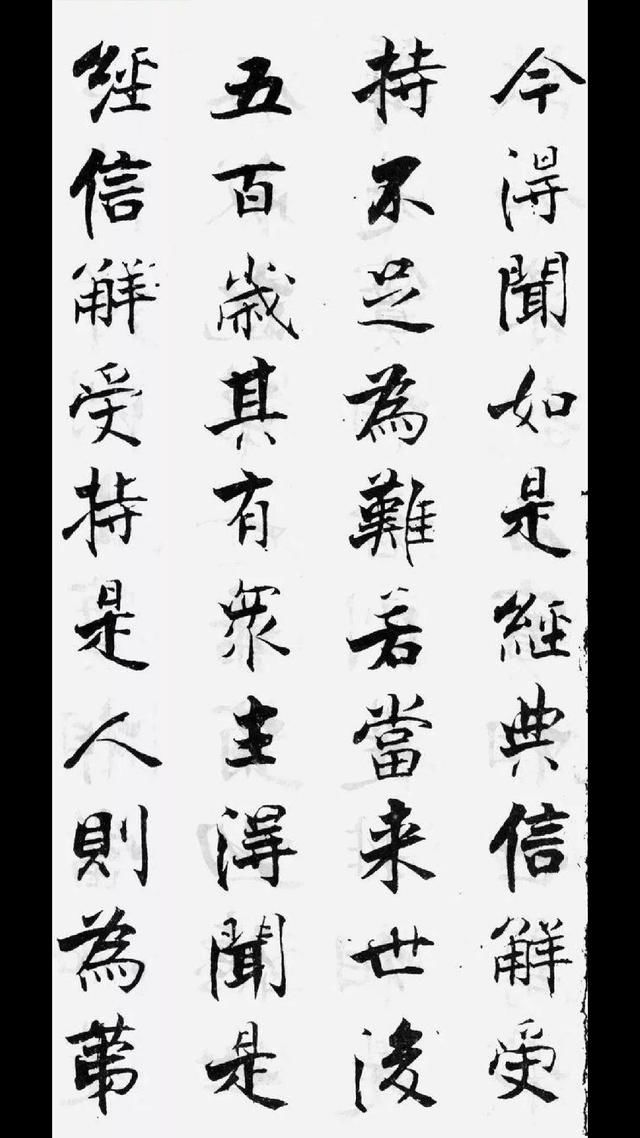 今得聞如是經典信解受
持不足為難若當来世後
五百歲其有眾生得聞是
經信解受持是人則為第